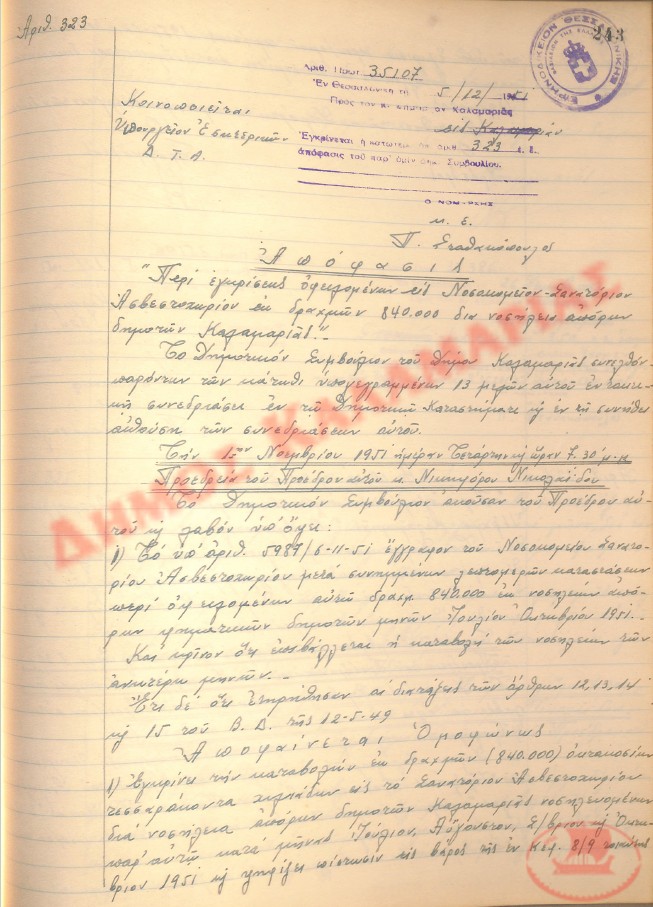 Ἀριθ. 323
243
ΕΙΡΗΝΟΔΙΚΕΙΟΝ ΘΕΣΣΑΛΟΝΙΚΗΣ
Ἀριθ. Πρωτ 35107
Ἐν Θεσσαλονίκῃ τῇ 5/12/1951
Πρὸς τὸν Καλαμαριᾶς
Κοινοποιεῖται
Ὑπουργεῖον Ἐσωτερικῶν
Δ. Τ. Α.
Ἐγκρίνεται ἡ κατωτέρω ὑπ' ἀριθ. 323 ἐ. ἔ.
ἀπόφασις τοῦ παρ' ὑμῖν Δημ. Συμβουλίου.
Ο ΝΟΜΑΡΧΗΣ
Π. Σταθακόπουλος
Ἀπόφασις
"Περὶ ἐγκρίσεως ὀφειλομένων εἰς Νοσοκομεῖον-Σανατόριον
Ἀσβεστοχωρίου ἐκ δραχμῶν 840.000 διὰ νοσήλεια ἀπόρων
δημοτῶν Καλαμαριᾶς".
Τὸ Δημοτικὸν Συμβούλιον τοῦ Δήμου Καλαμαριᾶς συνελθὸν
παρόντων τῶν κάτωθι ὑπογεγραμμένων 13 μελῶν αὐτοῦ ἐν τακτι-
κῇ συνεδριάσει ἐν τῷ Δημοτικῷ Καταστήματι κ ἐν τῇ συνήθει
αἰθούσῃ τῶν συνεδριάσεων αὐτοῦ.
Τὴν Νοεμβρίου 1951 ἡμέραν Τετάρτην κ ὥραν 7.30 μ.μ.
Προεδρείᾳ τοῦ Προέδρου αὐτοῦ κ. Νικηφόρου Νικολαΐδου
Τὸ Δημοτικὸν Συμβούλιον ἀκοῦσαν τοῦ Προέδρου αὐ-
τοῦ κ λαβὸν ὑπ' ὄψει:
1) Τὸ ὑπ' ἀριθ. 5987/6-11-51 ἔγγραφον τοῦ Νοσοκομείου Σανατο-
ρίου Ἀσβεστοχωρίου μετὰ συνημμένων λεπτομερῶν καταστάσεων
περὶ ὀφειλομένων αὐτῷ δραχμ. 840.000 ἐκ νοσηλείων ἀπό-
ρων δημοτῶν μηνῶν Ἰουλίου Ὀκτωβρίου 1951.
Καὶ κρῖνον ὅτι ἐπιβάλλεται ἡ καταβολὴ τῶν νοσηλείων τῶν
ἀνωτέρω μηνῶν.
Ἔτι δὲ ὅτι ἐτηρήθησαν αἱ διατάξεις τῶν ἄρθρων 12, 13, 14
κ 15 τοῦ Β. Δ. τῆς 12-5-49
Ἀποφαίνεται Ὁμοφώνως
1) Ἐγκρίνει τὴν καταβολὴν ἐκ δραχμῶν (840.000) ὀκτακοσίων
τεσσαράκοντα χιλιάδων εἰς τὸ Σανατόριον Ἀσβεστοχωρίου
διὰ νοσήλεια ἀπόρων δημοτῶν Καλαμαριᾶς νοσηλευομένων
παρ' αὐτῷ κατὰ μῆνας Ἰούλιον, Αὔγουστον, Σ/βριον κ Ὀκτω-
βριον 1951 κ ψηφίζει πίστωσιν εἰς βάρος τῆς ἐν Κεφ. 8/9
ΔΗΜΟΣ ΚΑΛΑΜΑΡΙΑΣ